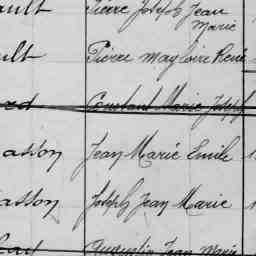 ault Pierre Joseph Jean
Marie
ult Pierre Magloire René
Constant Marie Joseph
asson Jean Marie Emile
asson Joseph Jean Marie
Quentin Jean Marie